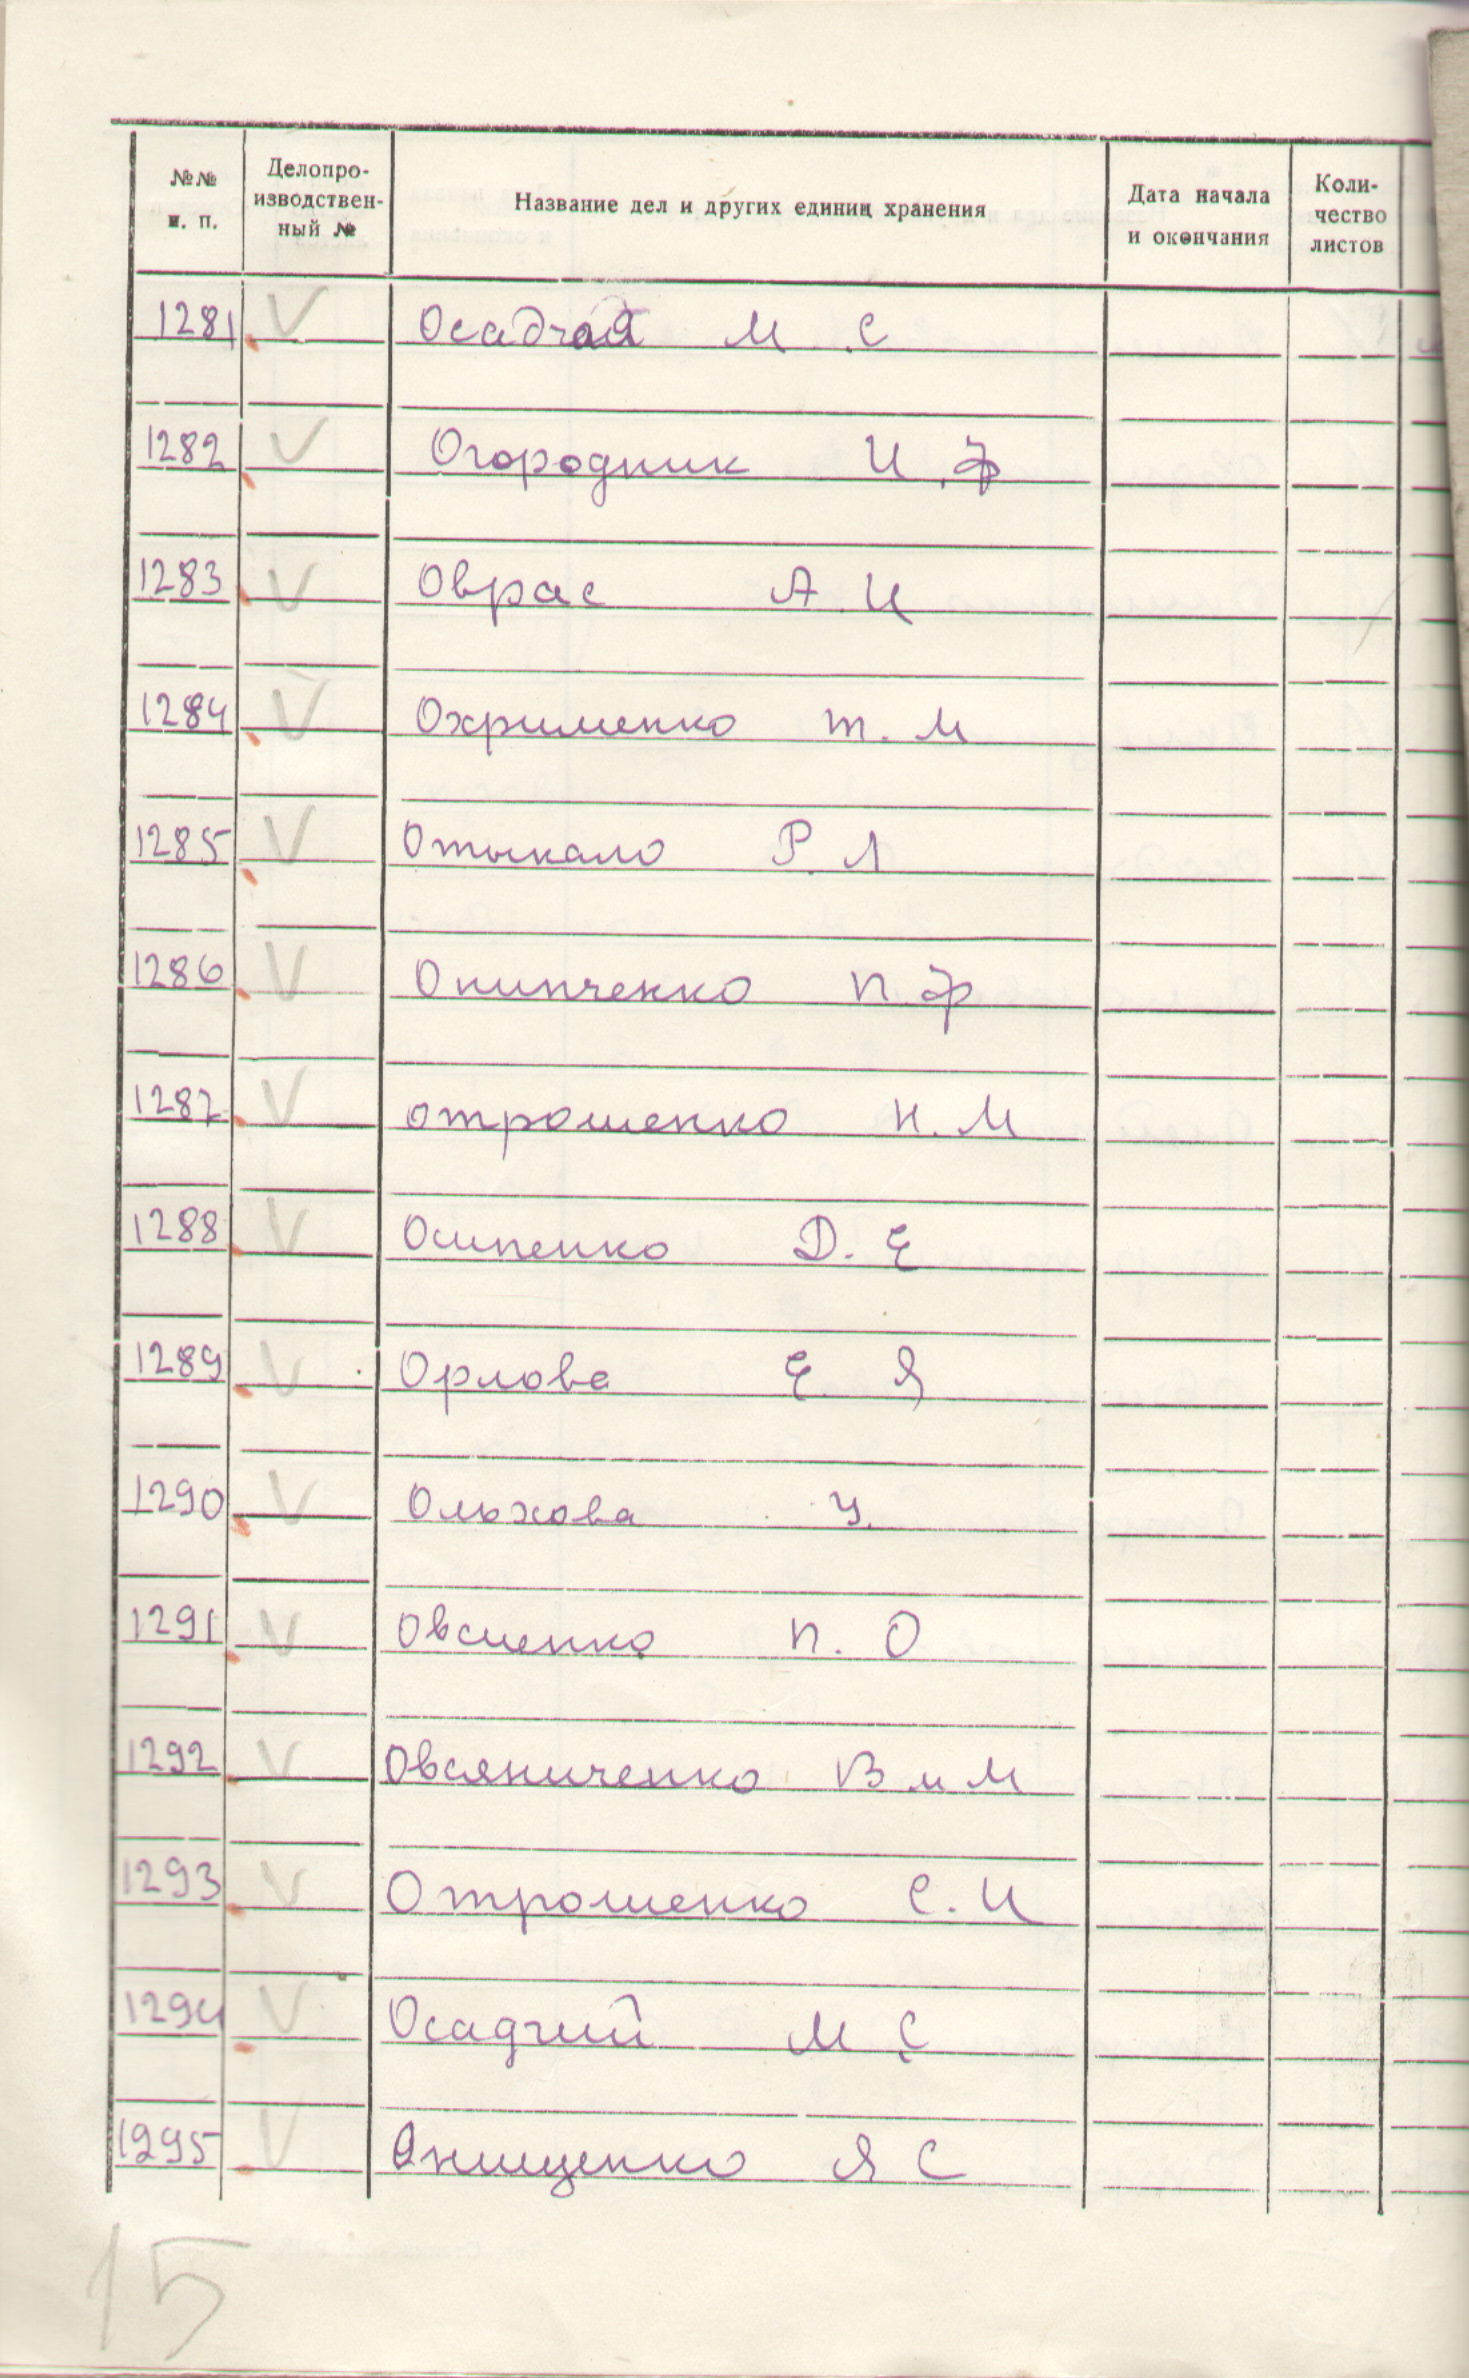 №№ п. п. Делопроизводственный № Название дел и других единиц хранения Дата начала и окончания Количество листов
1281 V Осадчая М. С
1282 V Огородник И. Ф
1283 V Оврас А. И
1284 V Охрименко Т. М
1285 V Отыкало Р. Л
1286 V Онипченко П. Ф
1287 V Отрошенко Н. М
1288 V Осипенко Д. Е
1289 V Орлова Е Я
1290 V Ольхова У.
1291 V Овсиенко П. О
1292 V Овсяниченко В и М
1293 V Отрошенко С. И
1294 V Осадчий М С
1295 V Онищенко Я С
15